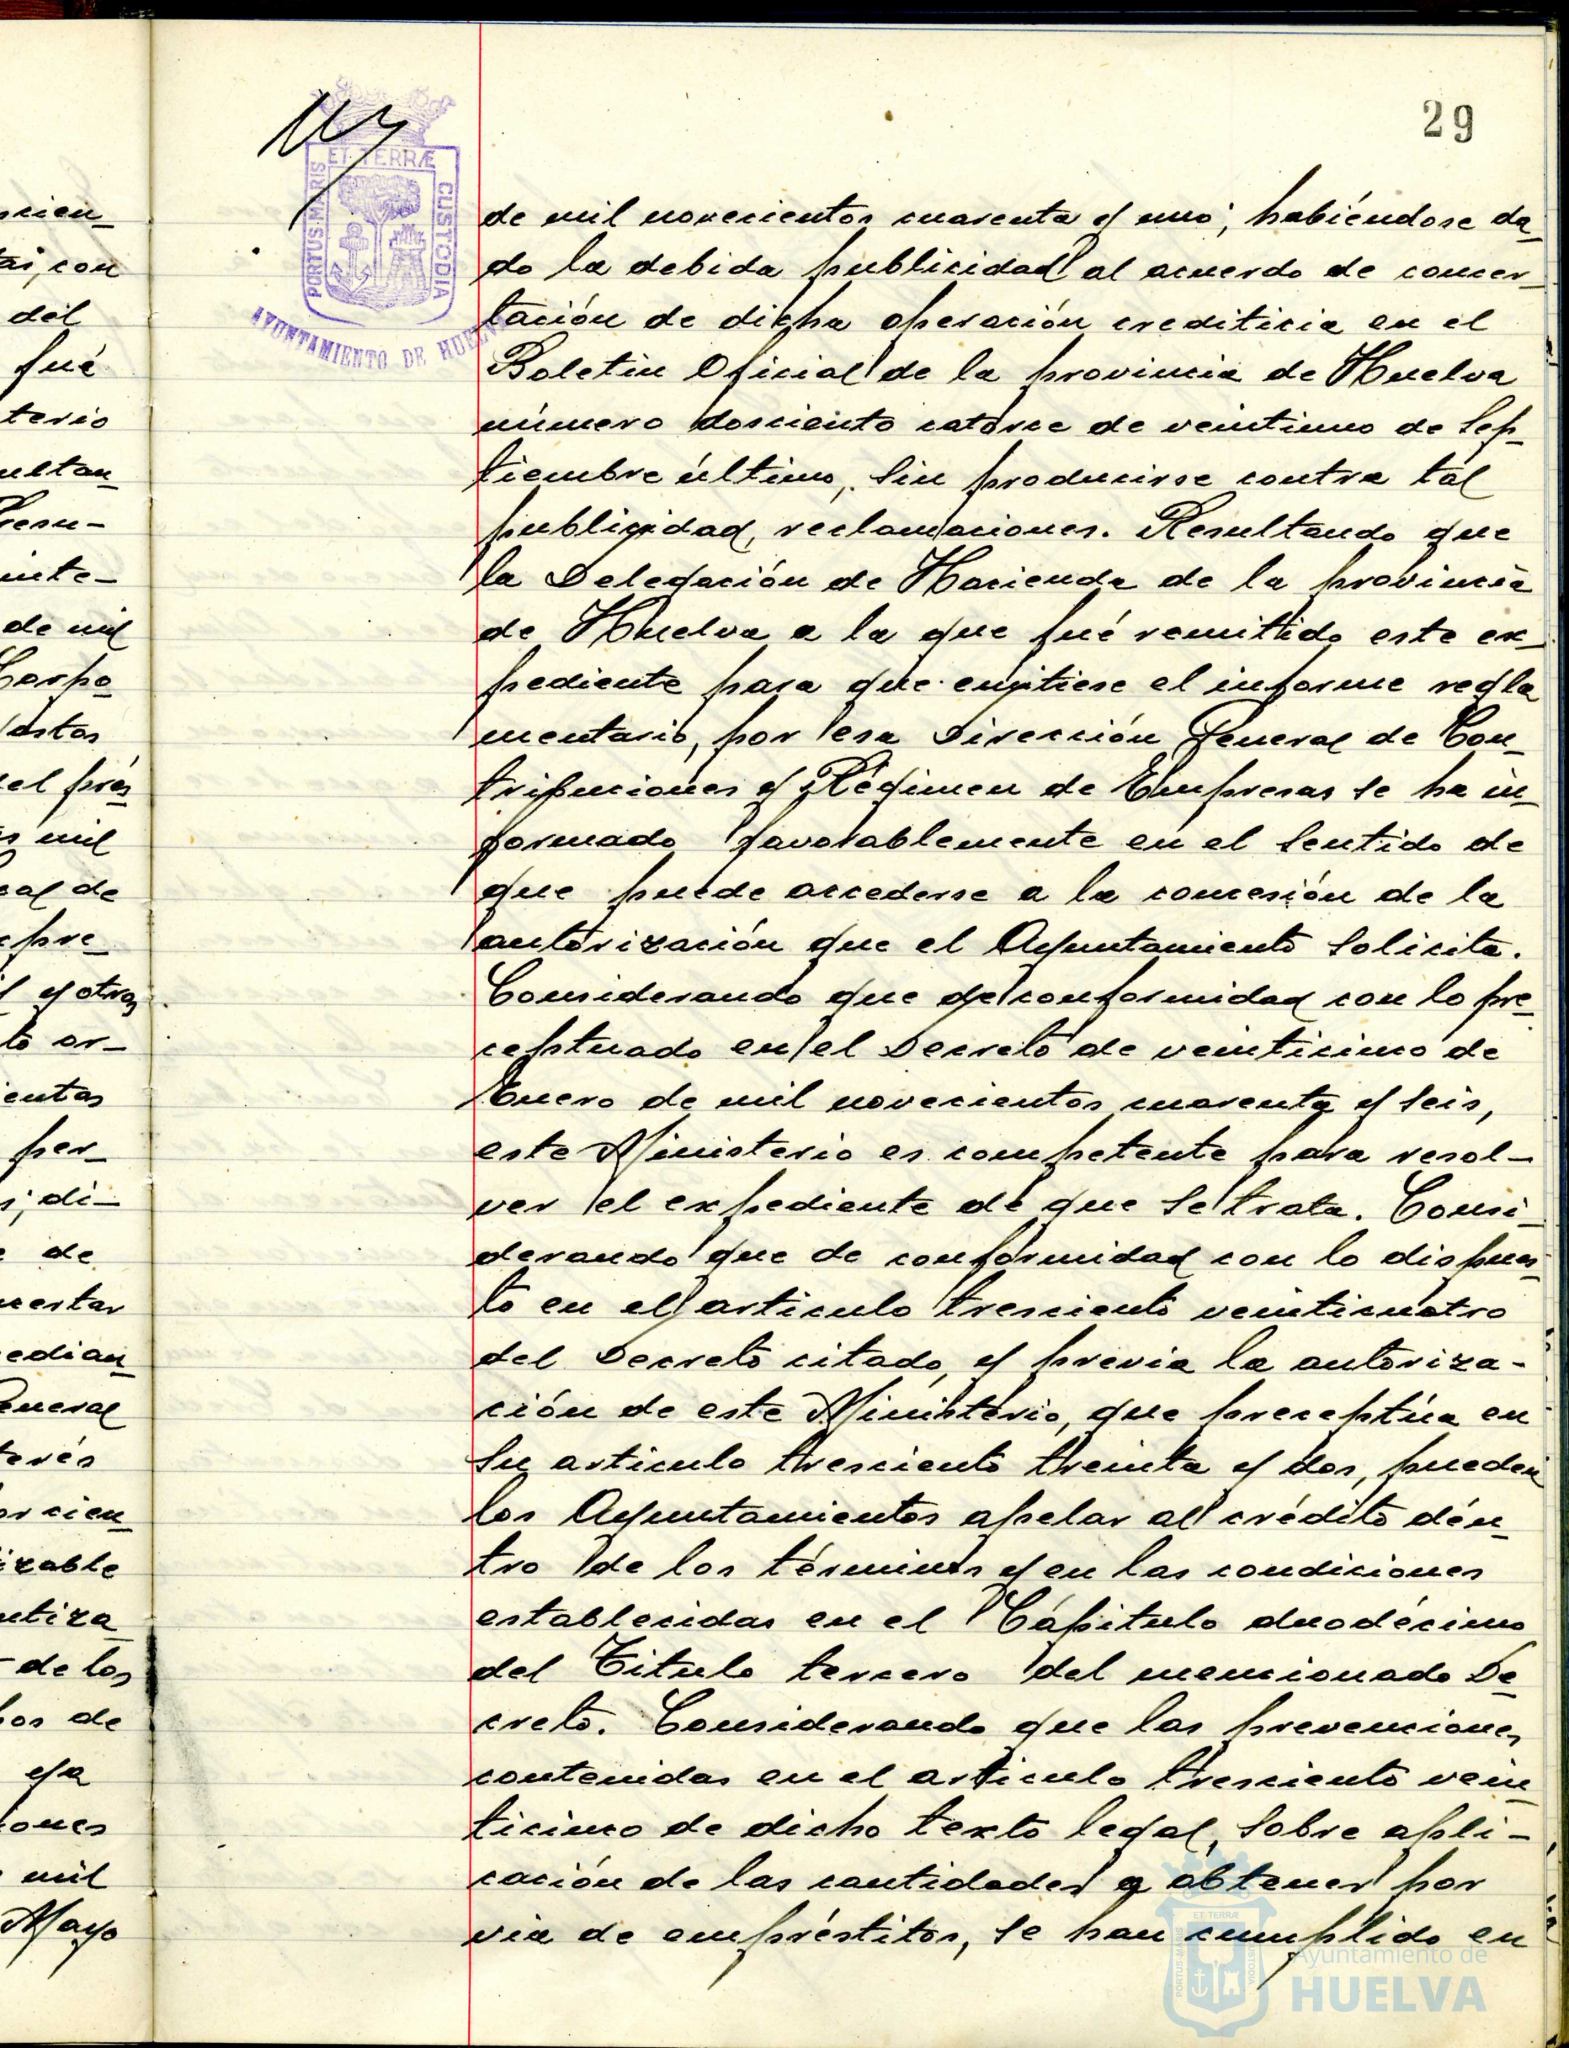 29
ET TERRÆ
PORTUS MARIS
CUSTODIA
AYUNTAMIENTO DE HUELVA
de mil novecientos cuarenta y uno; habiéndose da-
do la debida publicidad al acuerdo de concer-
tación de dicha operación crediticia en el
Boletin Oficial de la provincia de Huelva
número dosciento catorce de veintiuno de Sep-
tiembre último, sin producirse contra tal
publicidad, reclamaciones. Resultando que
la Delegación de Hacienda de la provincia
de Huelva a la que fué remitido este ex-
pediente para que emitiese el informe regla
mentario, por esa Dirección General de Con-
tribuciones y Régimen de Empresas se ha in-
formado favorablemente en el sentido de
que puede accederse a la concesión de la
autorización que el Ayuntamiento solicita.
Considerando que de conformidad con lo pre-
ceptuado en el Decreto de veinticinco de
Enero de mil novecientos cuarenta y seis,
este Ministerio es competente para resol-
ver el expediente de que se trata. Consi-
derando que de conformidad con lo dispues-
to en el articulo tresciento veinticuatro
del Decreto citado, y previa la autoriza-
ción de este Ministerio, que preceptúa en
su articulo tresciento treinta y dos, pueden
los Ayuntamientos apelar al crédito den-
tro de los términos y en las condiciones
establecidas en el Cápitulo duodécimo
del Titulo tercero del mencionado De-
creto. Considerando que las prevenciones
contenidas en el articulo tresciento vein-
ticinco de dicho texto legal, sobre apli-
cación de las cantidades a obtener por
via de empréstitos, se han cumplido en
Ayuntamiento de
HUELVA